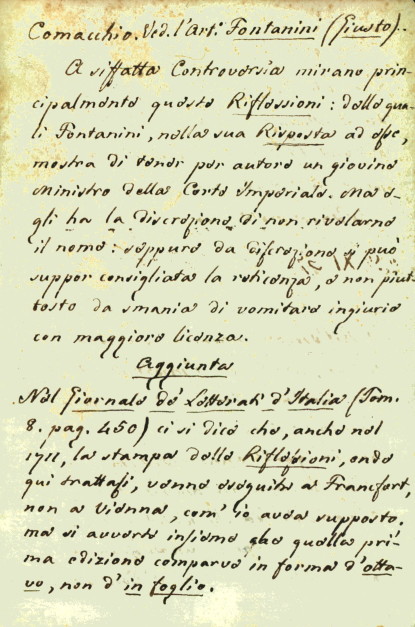 Comacchio. Ved. l'Art. Fontanini (Giusto).
A siffatta Controversia mirano prin-
cipalmente queste Riflessioni: delle qua-
li Fontanini, nella sua Risposta ad esse,
mostra di tener per autore un giovine
Ministro della Corte Imperiale. Ma e-
gli ha la discrezione di non rivelarne
il nome: seppure da discrezione si può
suppor consigliata la reticenza, e non piut-
tosto da smania di vomitare ingiurie
con maggiore licenza.
Aggiunta
Nel Giornale de' Letterati d'Italia (Tom.
8. pag. 450) ci si dice che, anche nel
1711, la stampa delle Riflessioni, onde
qui trattasi, venne eseguita a Francfort,
non a Vienna, com' io avea supposto.
ma si avverte insieme che quella pri-
ma edizione comparve in forma d'otta-
vo, non d' in foglio.